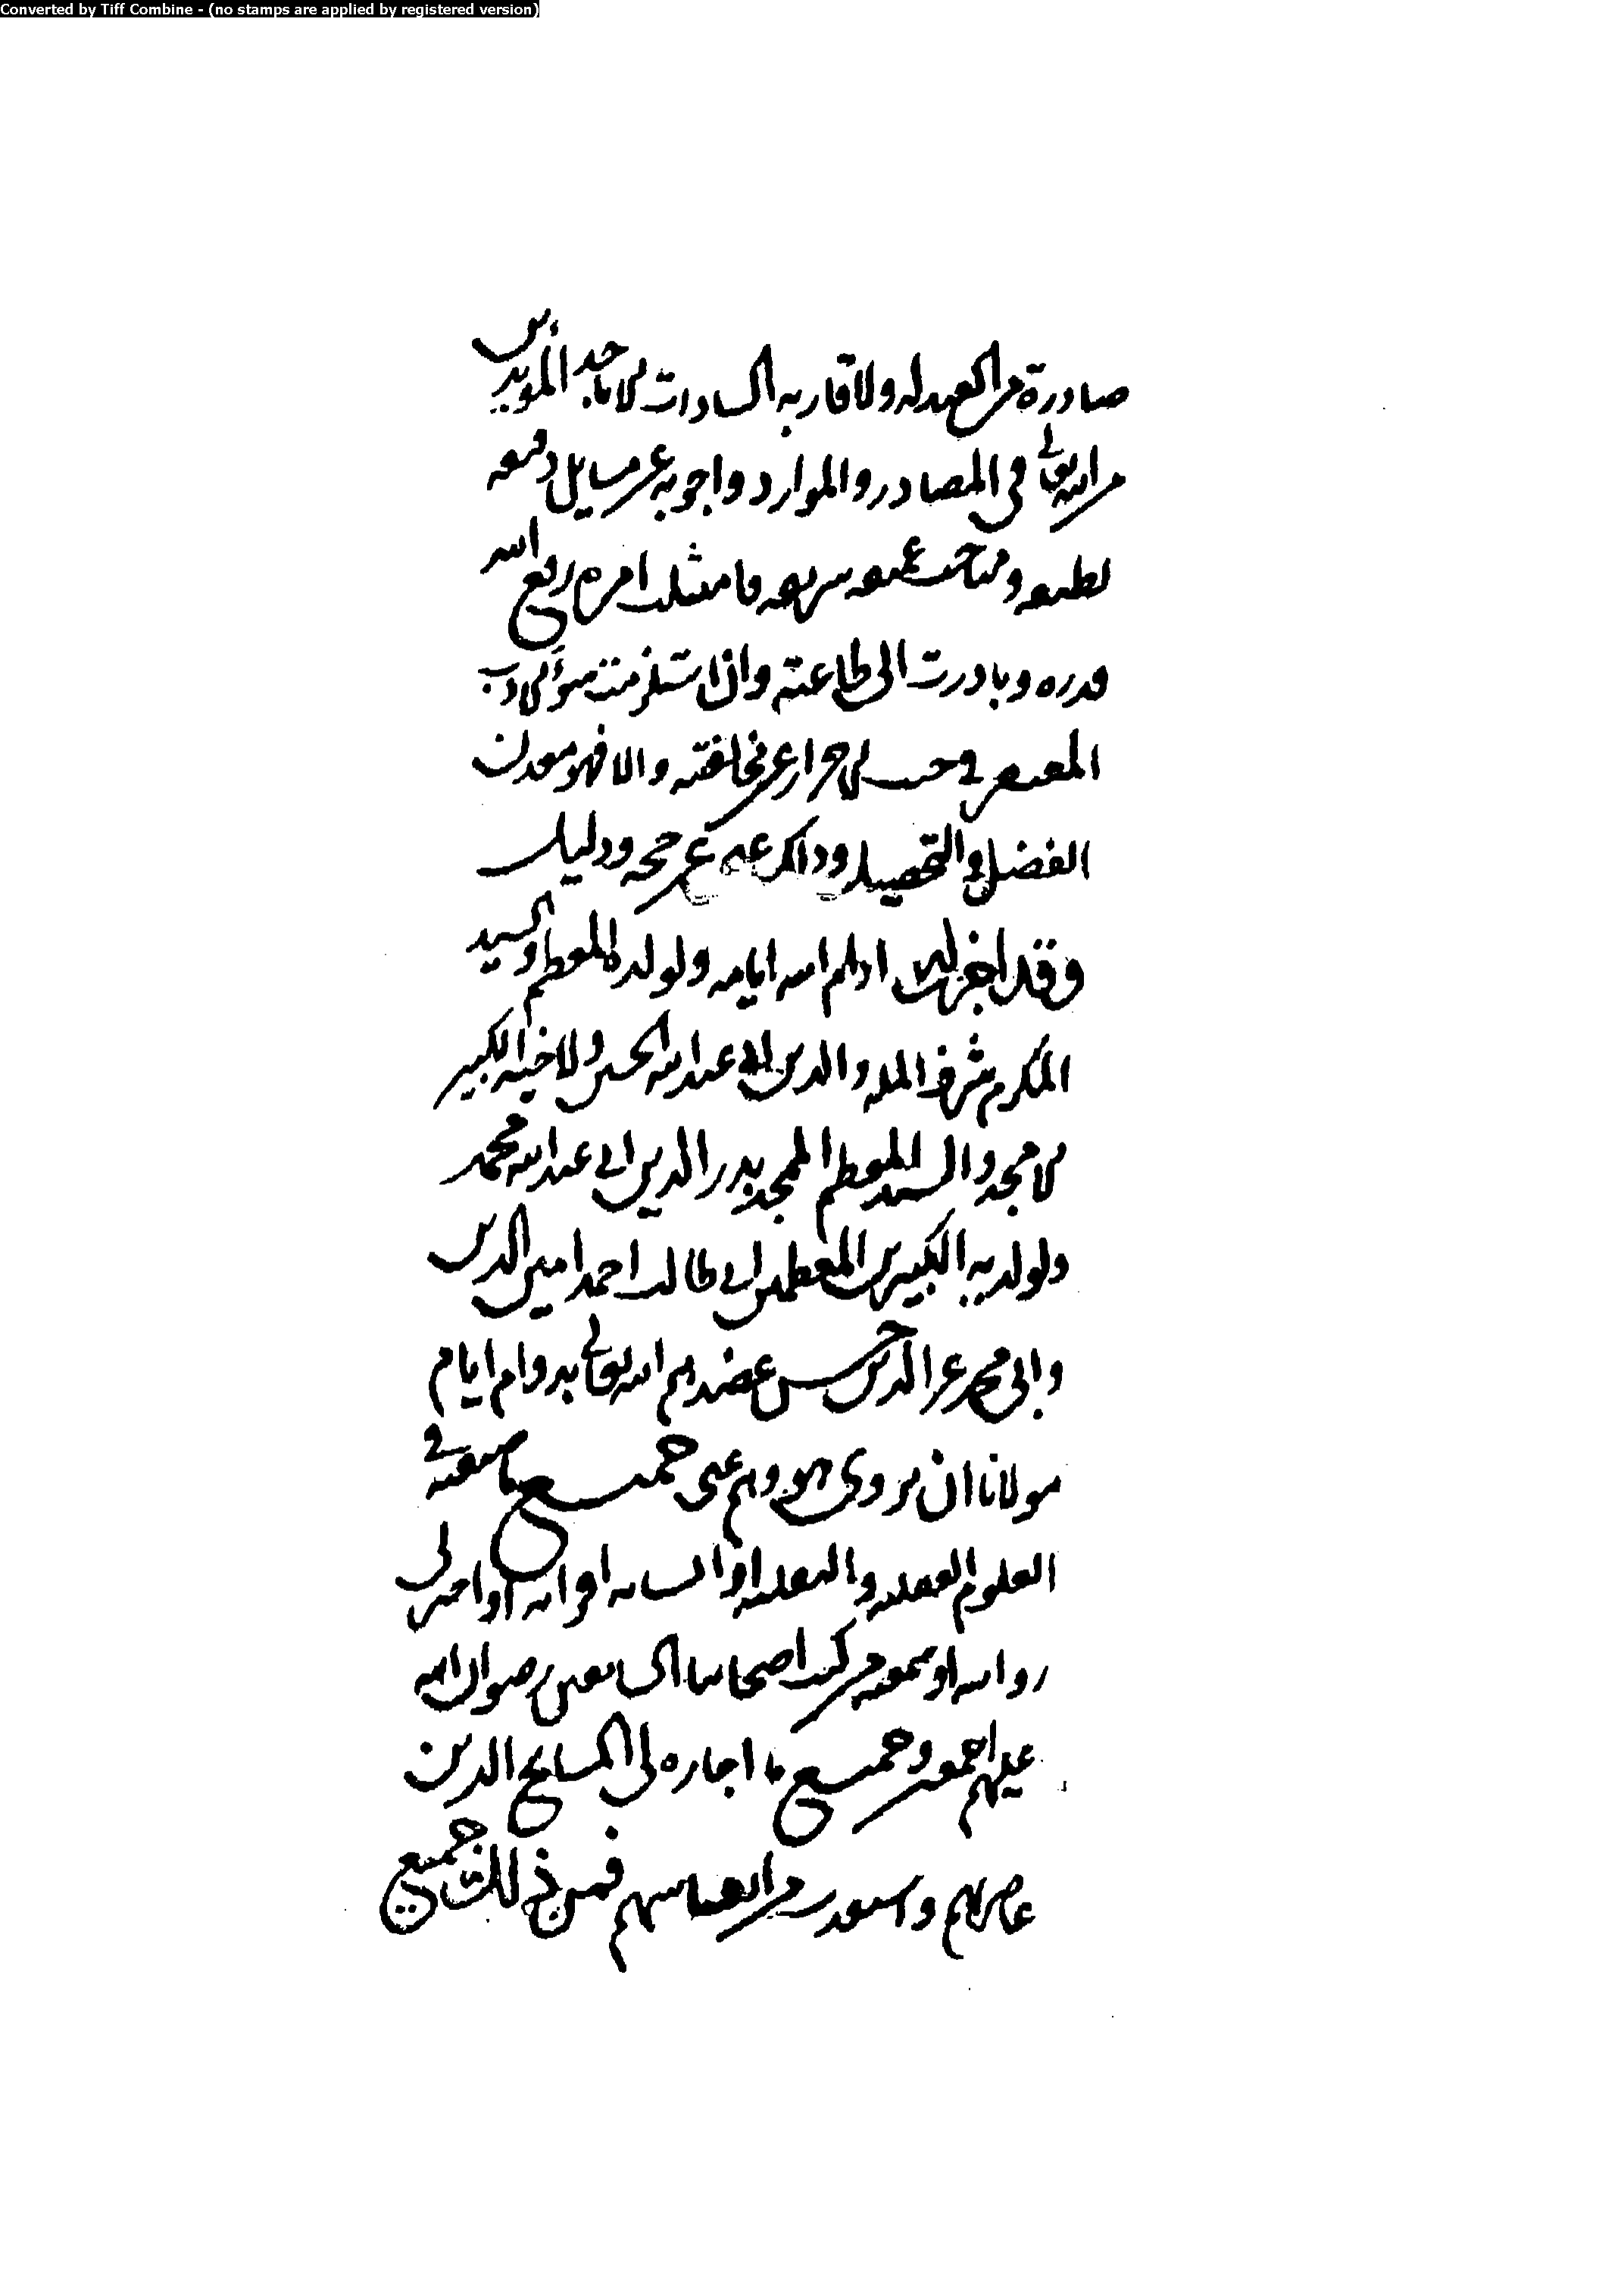 Converted by Tiff Combine - (no stamps are applied by registered version)
صادرة من العبد له ولاقاربه السادات الاماجد المويدين
من الله تعالى في المصادر والموارد واجوبة عن مسايل دقيقه
لطيفه ومباحث عميقه شريفه فامتثلت امره رفع الله
قدره وبادرت الى طاعته وان استلزمت سوء الادب
المغتفر في جنب الاحتراز عن مخالفته والا فهو معدن
الفضل والتحصيل وذلك غني عن حجه ودليل
وقد اجزت له ادام الله ايامه ولولده المعظم والسيد
المكرم شرف المله والدين ابي عبد الله الحسين ولاخيه الكبير
الامجد والسيد المعظم الممجد بدر الدين ابي عبد الله محمد
ولولديه الكبيرين المعظمين ابي طالب احمد امين الدين
وابي محمد عز الدين حسن عضدهم الله تعالى بدوام ايام
مولانا ان يروي هو وهم عني جميع ما صنفته في
العلوم العقليه والنقليه او انشاته او قراته او اجيز لي
روايته او سمعته من كتب اصحابنا السابقين رضوان الله
عليهم اجمعين وجميع ما اجازه لي المشايخ الذين
عاصرتهم واستفدت من انفاسهم فمن ذلك جميع